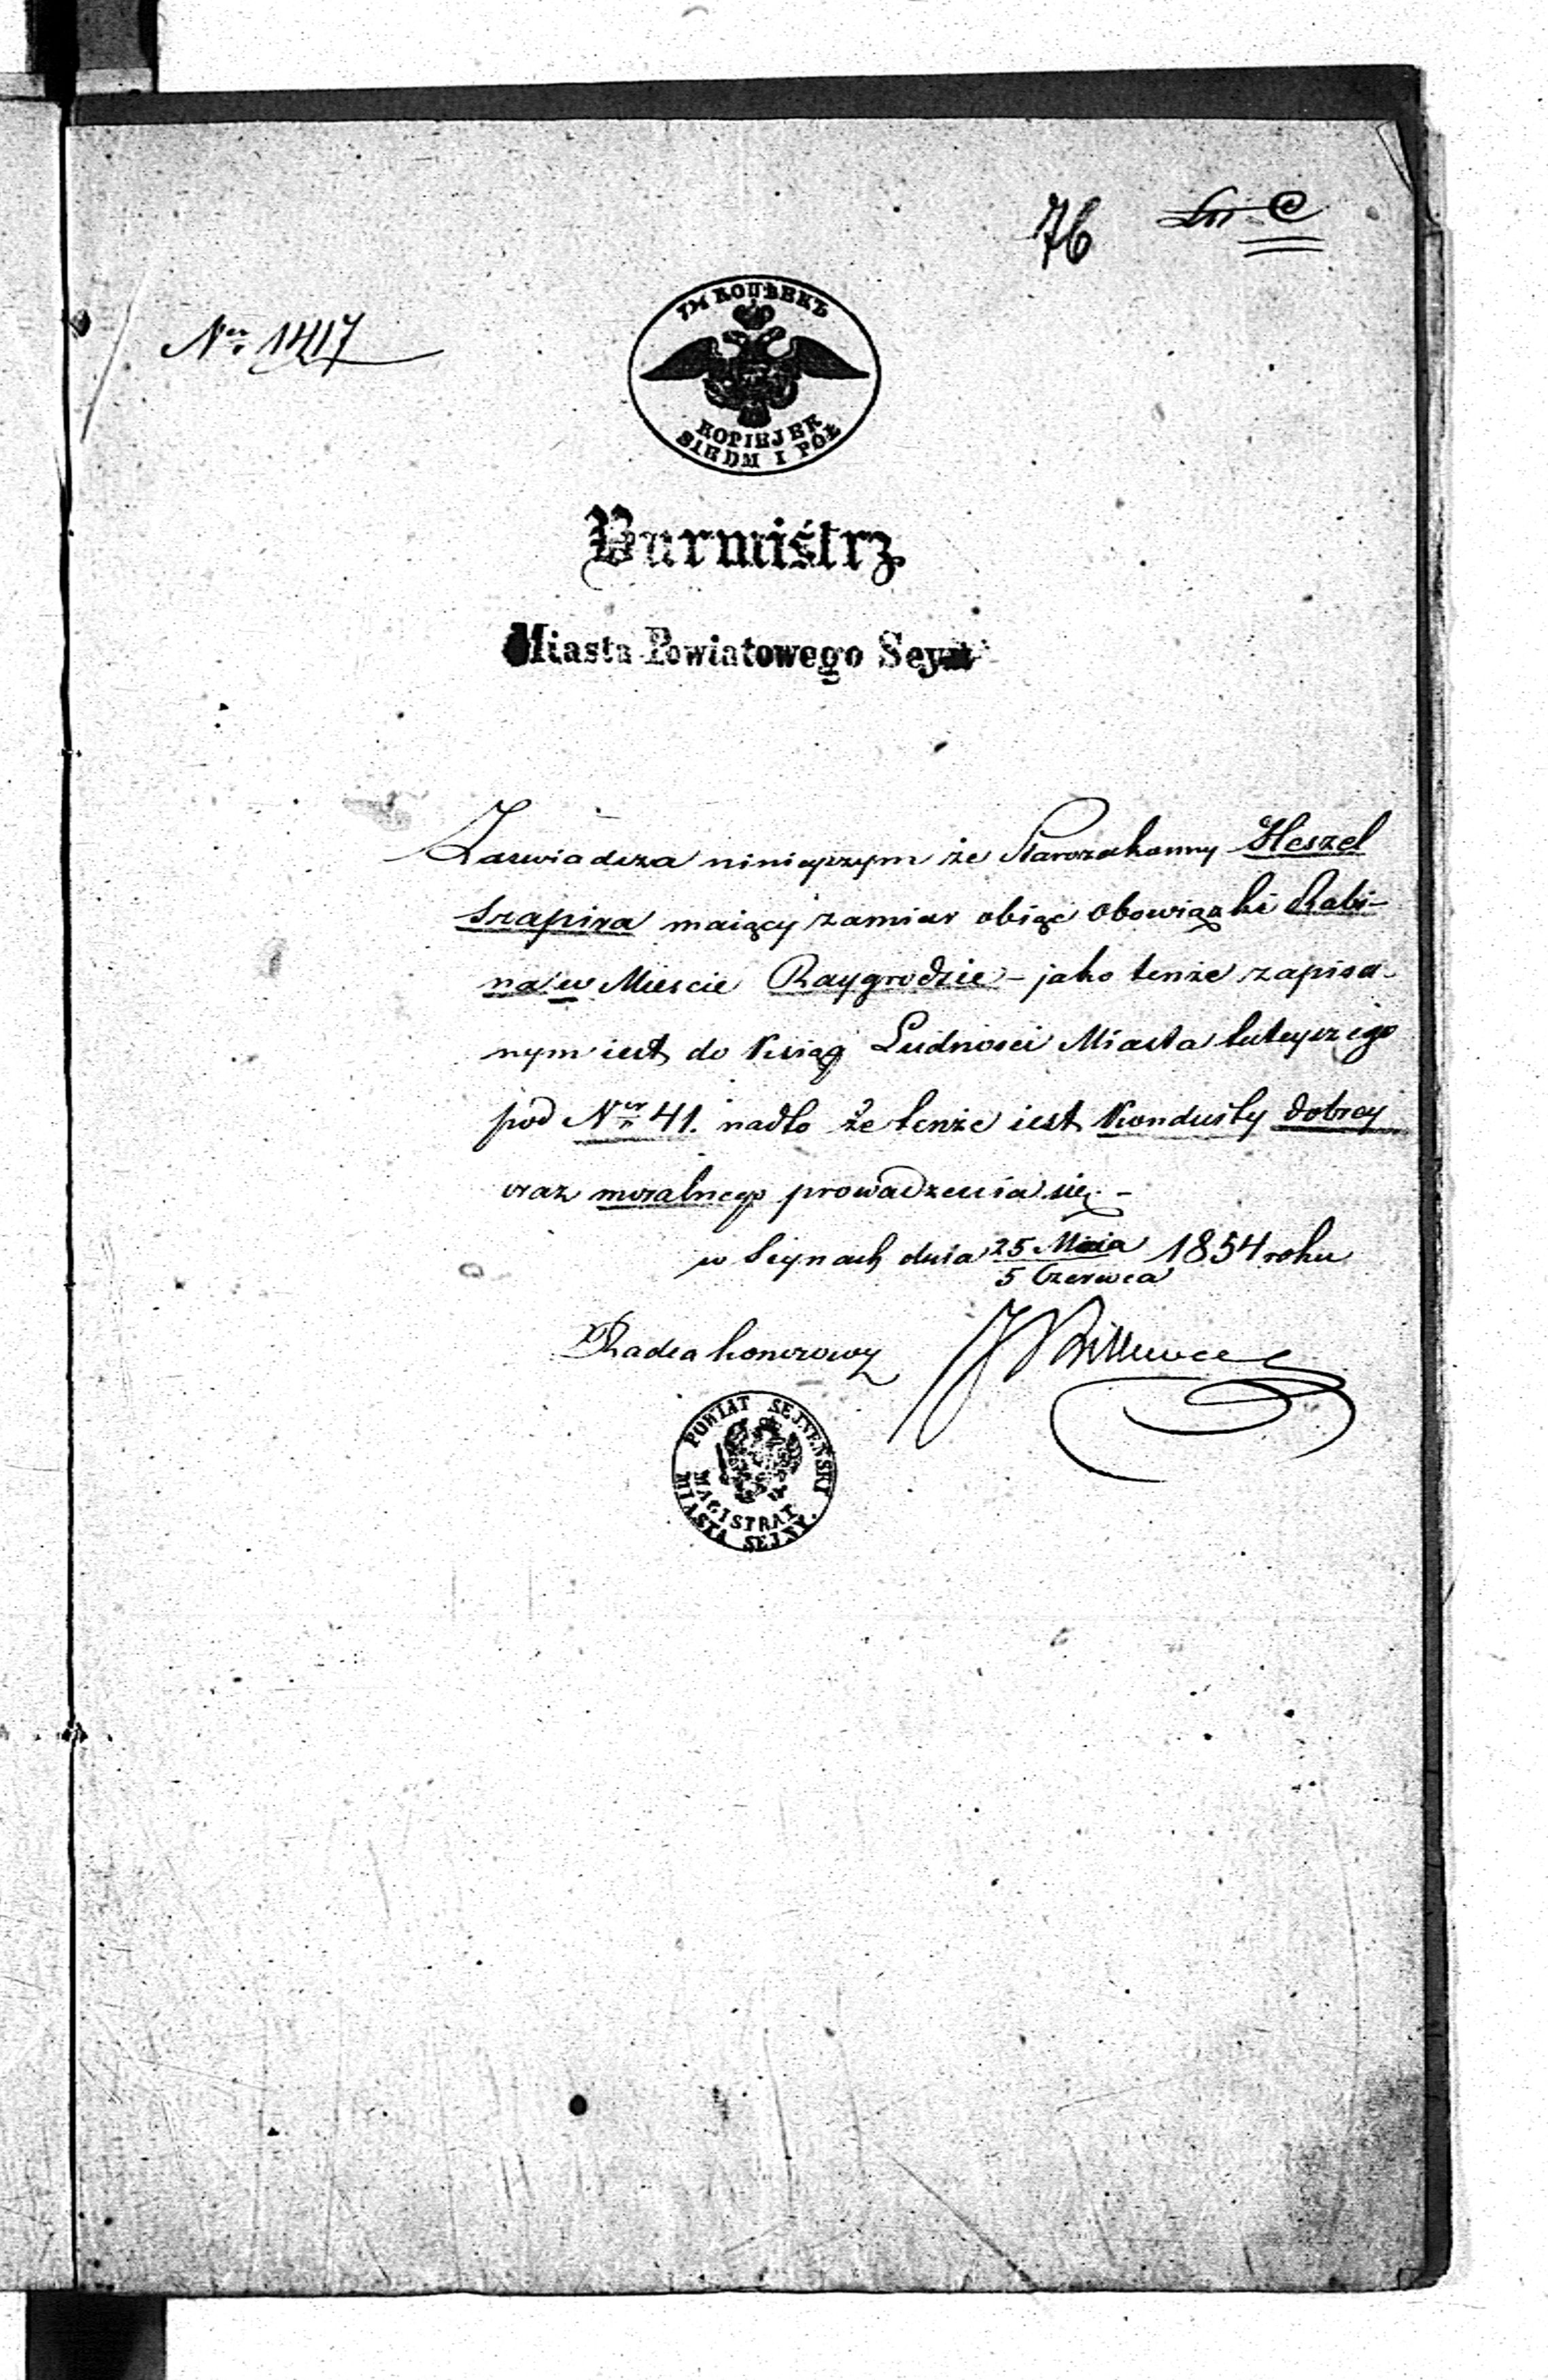 76 Lit. C
Nr. 1417
7½ КОПѢЕКЪ
KOPIEJEK
SIEDM I PÓŁ
Burmistrz
Miasta Powiatowego Seyn
Zaswiadcza ninieyszym że Starozakonny Heszel
Szapira maiący zamiar obiąć obowiązki Rabi-
na w Miescie Raygrodzie - jako tenże zapisa-
nym iest do Xsiąg Ludnosci Miasta tuteyszego
pod Nr 41. nadto że tenże iest Konduity dobrey
oraz moralnego prowadzenia się. -
w Seynach dnia 25 Maia 1854 roku
5 Czerwca
Radca honorowy
POWIAT SEJNEŃSKI
MAGISTRAT
MIASTA SEJNY.